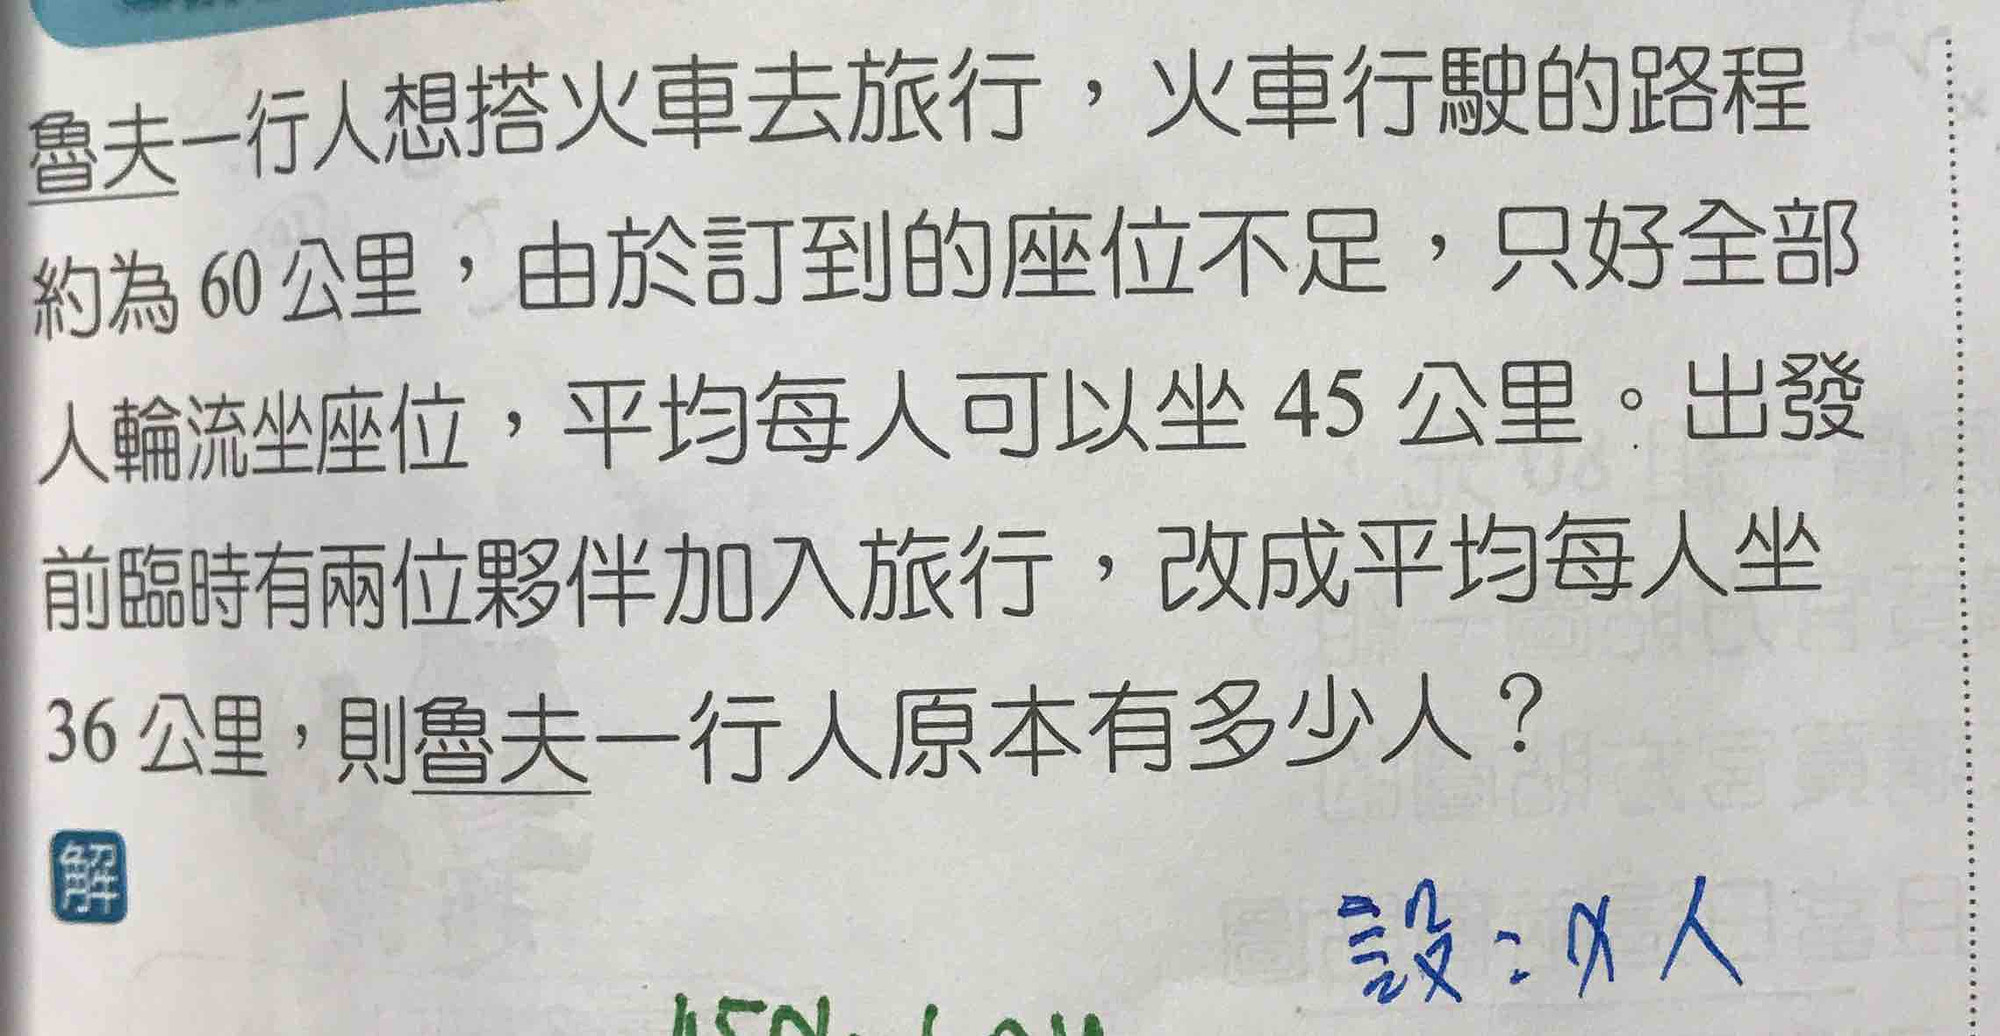 魯夫一行人想搭火車去旅行，火車行駛的路程
約為 60 公里，由於訂到的座位不足，只好全部
人輪流坐座位，平均每人可以坐 45 公里。出發
前臨時有兩位夥伴加入旅行，改成平均每人坐
36 公里，則魯夫一行人原本有多少人？
解
設：x 人